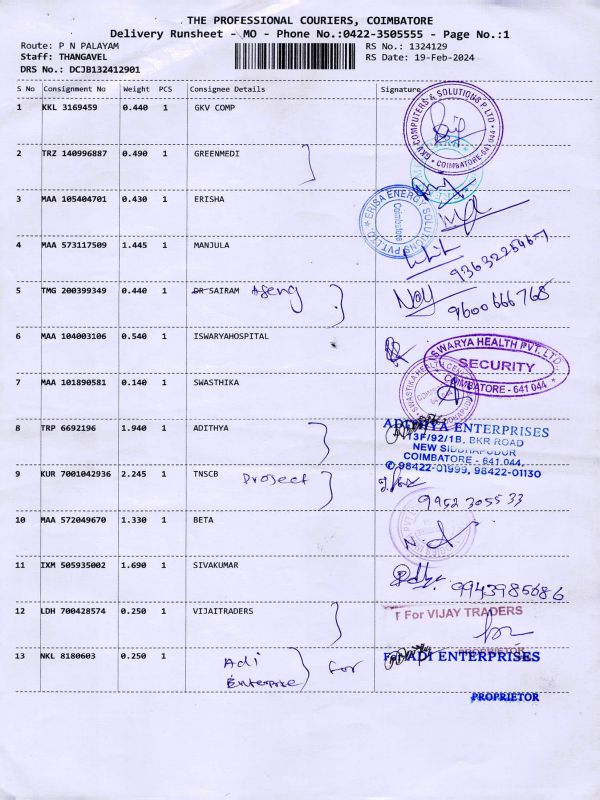 THE PROFESSIONAL COURIERS, COIMBATORE
Delivery Runsheet - MO - Phone No.:0422-3505555 - Page No.:1
Route: P N PALAYAM RS No.: 1324129
Staff: THANGAVEL RS Date: 19-Feb-2024
DRS No.: DCJB132412901
S No Consignment No Weight PCS Consignee Details Signature
1 KKL 3169459 0.440 1 GKV COMP
GKV COMPUTERS & SOLUTIONS P LTD * COIMBATORE-641 044 *
2 TRZ 140996887 0.490 1 GREENMEDI
3 MAA 105404701 0.430 1 ERISHA
ERISA ENERGY SOLUTIONS PVT LTD Coimbatore
4 MAA 573117509 1.445 1 MANJULA
5 TMG 200399349 0.440 1 DR SAIRAM
9600 666 768
6 MAA 104003106 0.540 1 ISWARYAHOSPITAL
ISWARYA HEALTH PVT. LTD.
SECURITY
COIMBATORE - 641 044
7 MAA 101890581 0.140 1 SWASTHIKA
8 TRP 6692196 1.940 1 ADITHYA
ADITHYA ENTERPRISES
13F/92/1B, BKR ROAD
NEW SIDDHAPUDUR
COIMBATORE - 641 044,
98422-01999, 98422-01130
9 KUR 7001042936 2.245 1 TNSCB Project
9952 305533
10 MAA 572049670 1.330 1 BETA
11 IXM 505935002 1.690 1 SIVAKUMAR
9943985686
12 LDH 700428574 0.250 1 VIJAITRADERS
For VIJAY TRADERS
PROPRIETOR
13 NKL 8180603 0.250 1 Adi Enterprise for
For ADI ENTERPRISES
PROPRIETOR